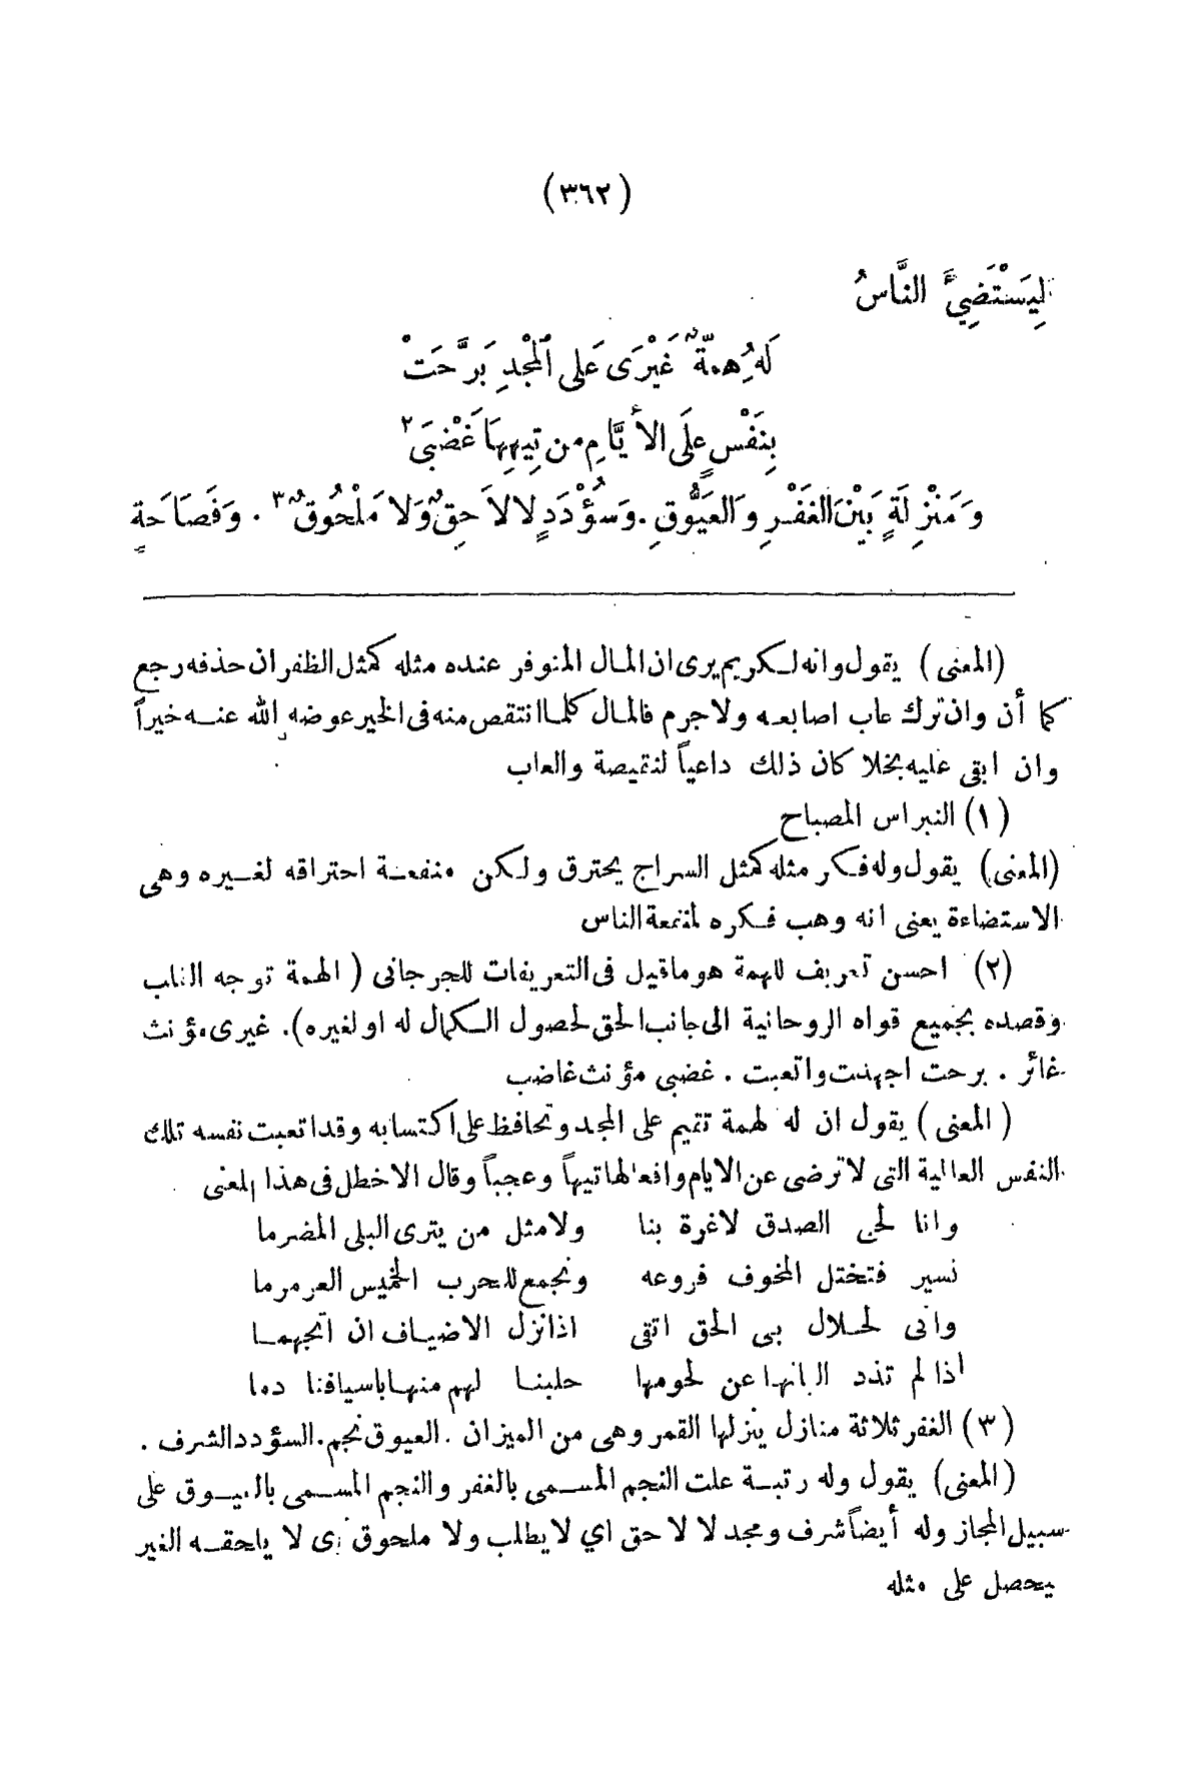 (٣٦٢)
لِيَسْتَضِيَّ النَّاسُ
لَهُ هِمَّةٌ غَيْرَى عَلَى الْمَجْدِ بَرَّحَتْ
بِنَفْسٍ عَلَى الأَيَّامِ من تِيهِهَا غَضْبَى ٢
وَمَنْزِلَةٍ بَيْنَ الغَفْرِ وَالعَيُّوقِ . وَسُؤْدَدٍ لا لاَحِقٌ وَلا مَلْحُوقٌ ٣ . وَفَصَاحَةٍ
(المعنى) يقول وانه لكريم يرى ان المال المتوفر عنده مثله كمثل الظفر ان حذفه رجع
كما أن وان ترك عاب اصابعه ولا جرم فالمال كلما انتقص منه فى الخير عوضه الله عنه خيراً
وان ابقى عليه بخلا كان ذلك داعياً لنقيصة والعاب
(١) النبراس المصباح
(المعنى) يقول وله فكر مثله كمثل السراج يحترق ولكن منفعة احتراقه لغيره وهى
الاستضاءة يعنى انه وهب فكره لمنفعة الناس
(٢) احسن تعريف للهمة هو ماقيل فى التعريفات للجرجانى ( الهمة توجه القلب
وقصده بجميع قواه الروحانية الى جانب الحق لحصول الكمال له او لغيره). غيرى مؤنث
غائر . برحت اجهدت واتعبت . غضبى مؤنث غاضب
( المعنى ) يقول ان له لهمة تقيم على المجد وتحافظ على اكتسابه وقد اتعبت نفسه تلك
النفس العالية التى لا ترضى عن الايام وافعالها تيهاً وعجباً وقال الاخطل فى هذا المعنى
وانا لحى الصدق لا غرة بنا ولا مثل من يترى البلى المضرما
نسير فتختل المخوف فروعه ونجمع للحرب الخميس العرمرما
وانى لحلال بى الحق اتقى اذا نزل الاضياف ان اتجهما
اذا لم تذد البانها عن لحومها حلبنا لهم منها باسيافنا دما
(٣) الغفر ثلاثة منازل ينزلها القمر وهى من الميزان . العيوق نجم. السؤدد الشرف .
(المعنى) يقول وله رتبة علت النجم المسمى بالغفر والنجم المسمى بالعيوق على
سبيل المجاز وله أيضاً شرف ومجد لا لاحق اي لا يطلب ولا ملحوق اى لا يلحقه الغير
يحصل على مثله